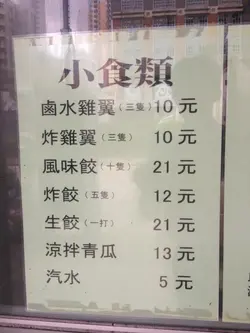 小食類
鹵水雞翼(三隻)10元
炸雞翼(三隻)10元
風味餃(十隻)21元
炸餃(五隻)12元
生餃(一打)21元
涼拌青瓜 13元
汽水 5元